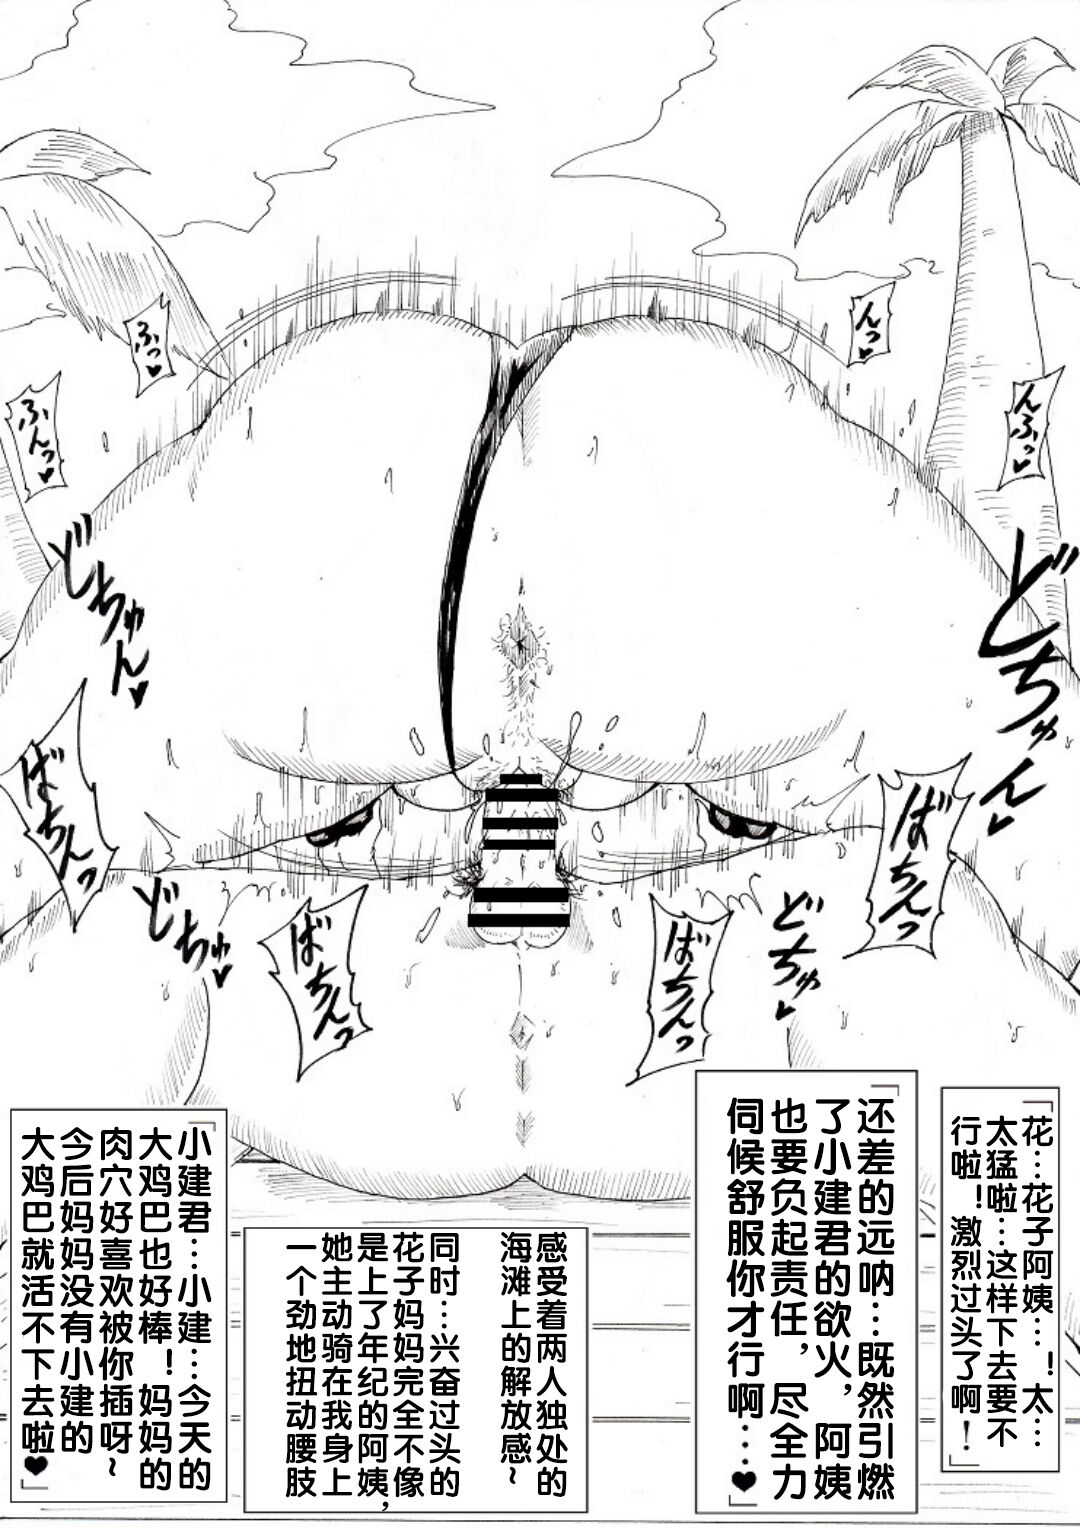 「花…花子阿姨…！太…
太猛啦…这样下去要不
行啦！激烈过头了啊！」
「还差的远呐…既然引燃
了小建君的欲火，阿姨
也要负起责任，尽全力
伺候舒服你才行啊…♥」
感受着两人独处的
海滩上的解放感~
同时…兴奋过头的
花子妈妈完全不像
是上了年纪的阿姨，
她主动骑在我身上
一个劲地扭动腰肢
「小建君…小建…今天的
大鸡巴也好棒！妈妈的
肉穴好喜欢被你插呀~
今后妈妈没有小建的
大鸡巴就活不下去啦♥」
んっ♥
んふっ♥
ふっ♥
ふんっ♥
どちゅん♥
どちゅん♥
ばちんっ
ばちんっ
どちゅ♥
どちゅ♥
ばちんっ
ばちんっ